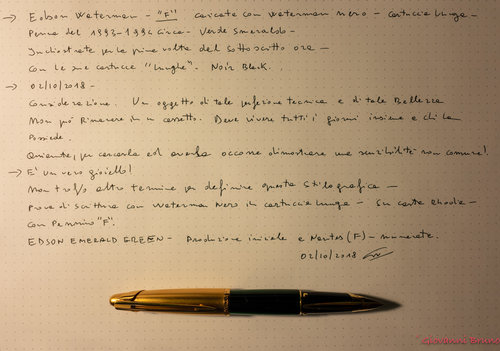 → Edson Waterman - "F" caricata con Waterman nero - cartuccia lunga -
Penna del 1993-1994 circa - Verde Smeraldo -
Inchiostrata per la prima volta dal sottoscritto ora -
Con le sue cartucce "lunghe". Noir Black.
→ 02/10/2018 -
Considerazione. Un oggetto di tale perfezione tecnica e di tale Bellezza
Non può rimanere in un cassetto. Deve vivere tutti i giorni insieme a chi la
Possiede.
per cercarla ed averla occorre dimostrare una sensibilità non comune!
→ E' un vero gioiello!
Non trovo altro termine per definire questa Stilografica -
Prova di scrittura con Waterman Nero in cartuccia lunga - Su carta Rhodia -
Con Pennino "F".
EDSON EMERALD GREEN - Produzione iniziale e (F) - numerata.
02/10/2018
Giovanni